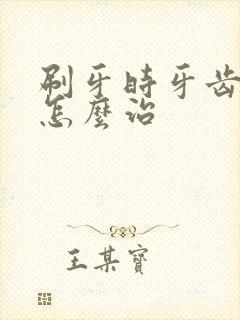 刷牙時牙齒
怎麼治
王某寶